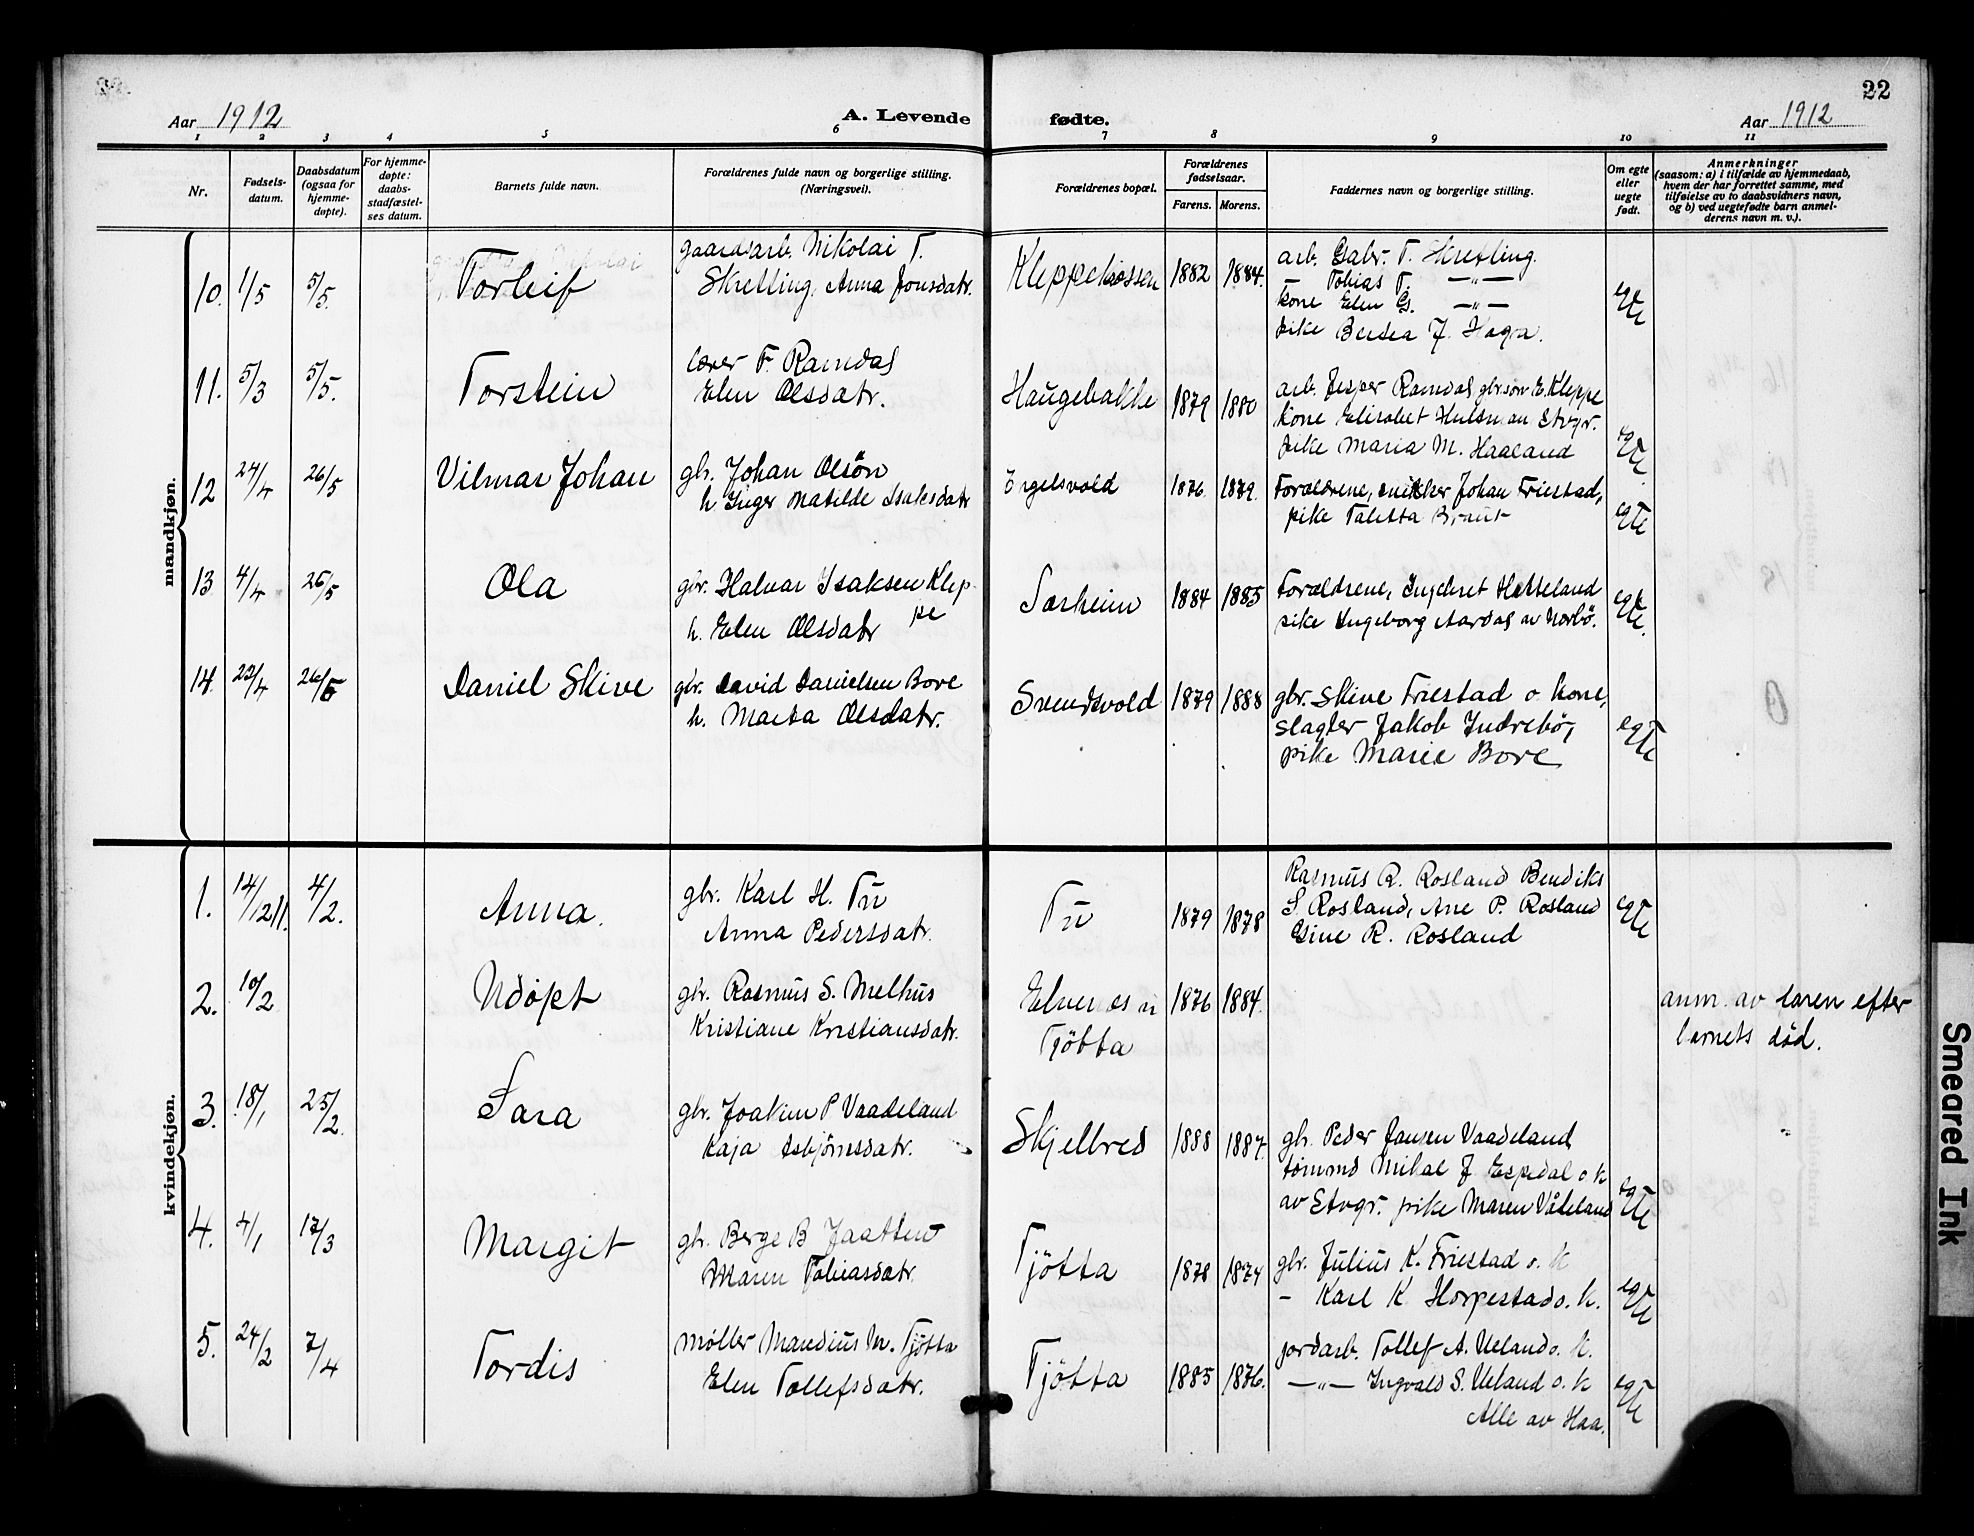 22
Aar 1912 A. Levende fødte. Aar 1912
1 2 3 4 5 6 7 8 9 10 11
Nr.
Fødsels-
datum.
Daabsdatum
(ogsaa for
hjemme-
døpte).
For hjemme-
døpte:
daabs-
stadfæstel-
ses datum.
Barnets fulde navn.
Forældrenes fulde navn og borgerlige stilling.
(Næringsvei).
Forældrenes bopæl.
Forældrenes
fødselsaar.
Farens. Morens.
Faddernes navn og borgerlige stilling.
Om egte
eller
uegte
født.
Anmerkninger
(saasom: a) i tilfælde av hjemmedaab,
hvem der har forrettet samme, med
tilføielse av to daabsvidners navn,
og b) ved uegtefødte barn anmel-
derens navn m. v.).
mandkjøn.
10. 1/5 5/5. Torleif
gaardarb. Nikolai T.
Skretling, Anna Jonsdatr.
Kleppekrossen 1882 1884.
arb. Gabr. T. Skretling.
— Tobias T. —"—
kone Elen G. —"—
pike Berta J. Haga.
egte
11. 5/3 5/5. Torstein
lærer F. Ramdal
Elen Olsdatr.
Haugebakke 1879 1880
arb. Jesper Ramdal gbr.søn E. Kleppe
kone Elisabet Hulsman Stvgr.
pike Maria M. Haaland
egte
12 24/4 26/5 Vilmar Johan
gbr. Johan Olsön
h. Inger Matilde Isaksdatr
Engelsvold 1876. 1879.
Forældrene, snikker Johan Friestad,
pike Taletta Braut
egte
13 4/4 26/5 Ola
gbr. Halvar Isaksen Klep-
pe
h. Elen Olsdatr
Særheim 1884 1885
Forældrene, Ingebret Hesseland
pike Ingeborg Aardal av Nærbö.
egte.
14. 22/4 26/5 Daniel Skive
gbr. David Danielsen Bore
h. Marta Olsdatr.
Svendsvold 1879 1888
gbr. Skive Friestad o kone,
slagter Jakob Indrebö,
pike Marie Bore
egte
kvindekjøn.
1. 14/12 11. 4/2. Anna.
gbr. Karl H. Tu
Anna Pedersdatr.
Tu 1879 1878
Rasmus R. Rosland Bendiks
S Rosland, Ane P. Rosland
Gine R. Rosland
egte
2. 10/2 Udöpt
gbr. Rasmus S. Melhus
Kristiane Kristiansdatr.
Tjötta 1876 1884.
anm. av faren efter
barnets död.
3. 18/1 25/2. Sara
gbr. Joakim P Vaadeland
Kaja Asbjörnsdatr.
Skjelbred 1888 1887.
gbr. Peder Jansen Vaadeland
tömmd Mikal J Espedal o. k
av Stvgr. pike Maren Vådeland
egte
4. 4/1 17/3 Margit
gbr. Berge B Jaatten
Maren Tobiasdatr.
Tjötta 1878 1874
gbr. Julius K. Friestad o. k
- Karl K Horpestad o. k.
egte
5. 24/2 7/4 Tordis
Møller Mandius M. Tjötta
Elen Tollefsdatr.
Tjötta 1885 1876.
jordarb. Tollef A. Ueland o. k.
—"— Ingvald S. Ueland o. k
Alle av Haa.
egte
Smeared Ink